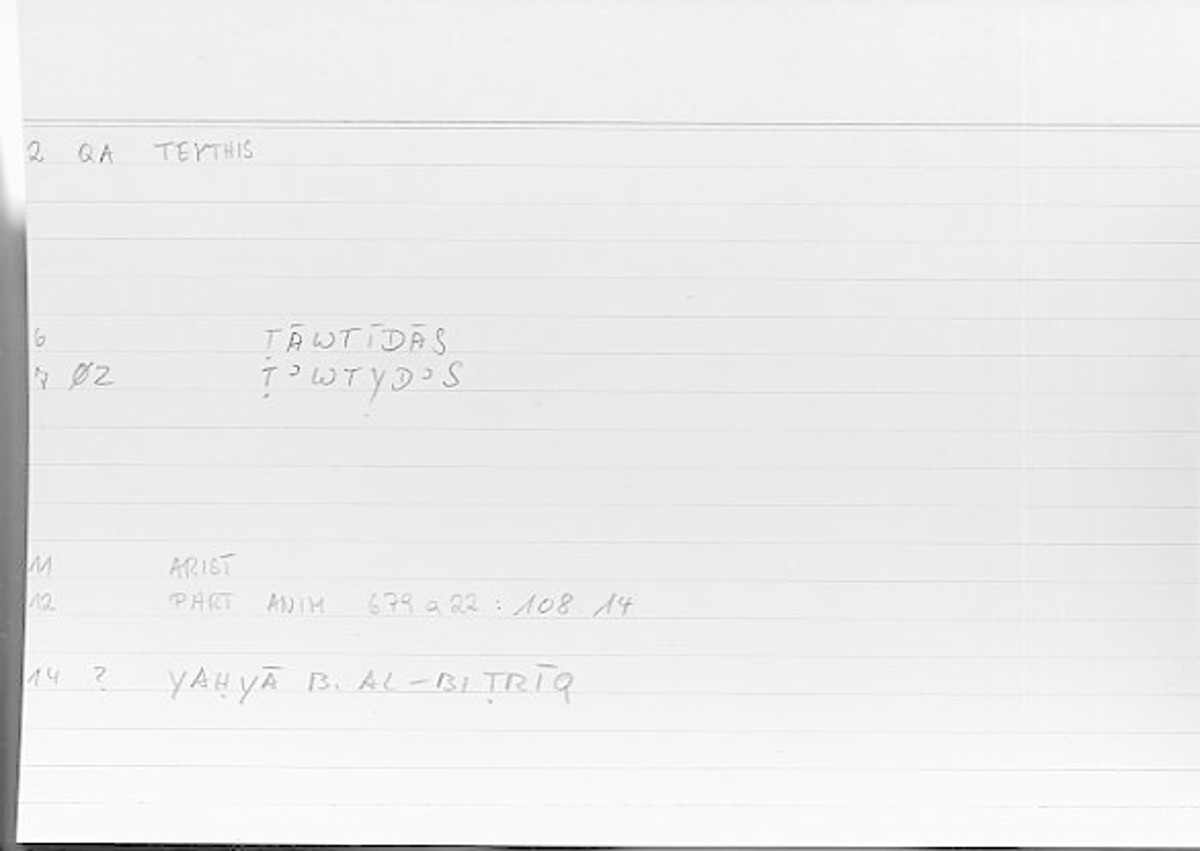 2 QA TEYTHIS
6 ṬĀWTĪDĀS
7 Ø2 Ṭ ͻWTYDͻS
11 ARIST
12 PART ANIM 679 a 22 : 108 14
14 ? YAḤYĀ B. AL-BIṬRĪQ